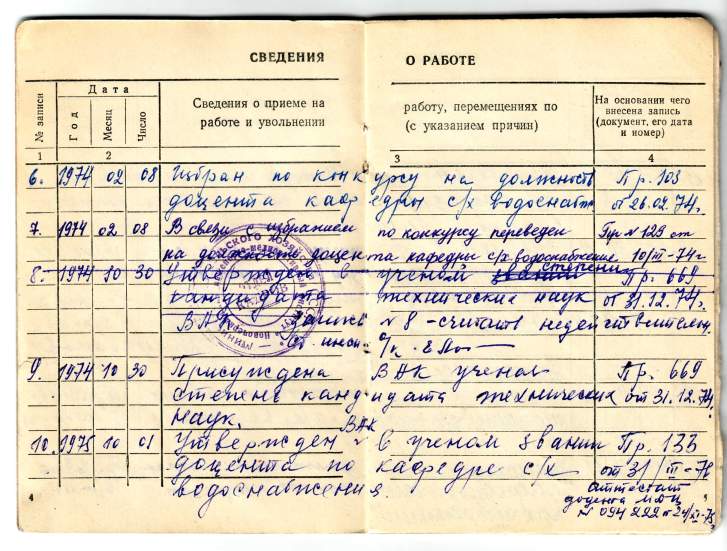 СВЕДЕНИЯ О РАБОТЕ
№ записи
Дата
Год
Месяц
Число
Сведения о приеме на
работе и увольнении
работу, перемещениях по
(с указанием причин)
На основании чего
внесена запись
(документ, его дата
и номер)
1 2 3 4
6. 1974 02 08 Избран по конкурсу на должность Пр. 103
доцента кафедры с/х водоснабж. от 26.02.74г.
7. 1974 02 08 В связи с избранием по конкурсу переведен Пр № 129 ст
на должность доцента кафедры с/х водоснабжение 10/III-74г
8. 1974 10 30 Утвержден в ученой степени Пр. 669
кандидата технических наук от 31.12.74г.
ВАК Запись № 8 - считать недействительн.
9. 1974 10 30 Присуждена ВАК ученая Пр. 669
степень кандидата технических от 31.12.74г.
наук.
10. 1975 10 01 Утвержден ВАК в ученом звании Пр. 133
доцента по кафедре с/х от 31/III-76
водоснабжения.
аттестат
доцента МДЦ
№ 094222
4